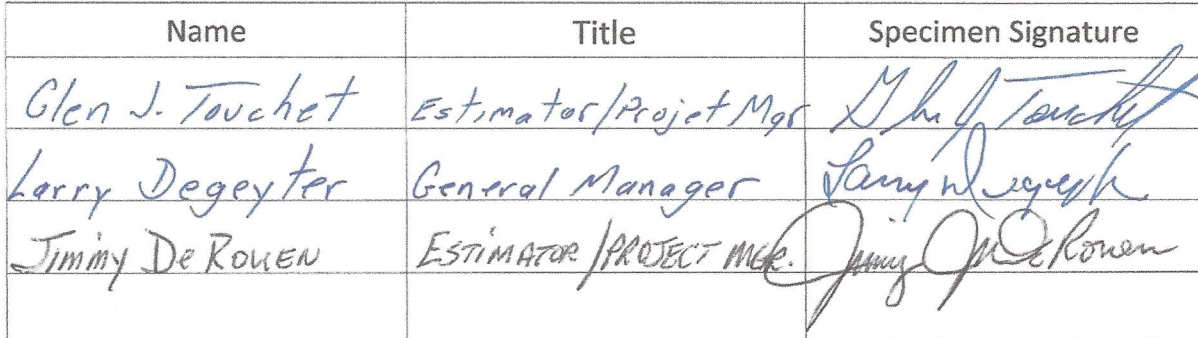 Name Title Specimen Signature
Glen J. Touchet Estimator/Projet Mgr Glen J Touchet
Larry Degeyter General Manager Larry Degeyter
Jimmy De Rouen ESTIMATOR/PROJECT MGR. Jimmy J DeRouen